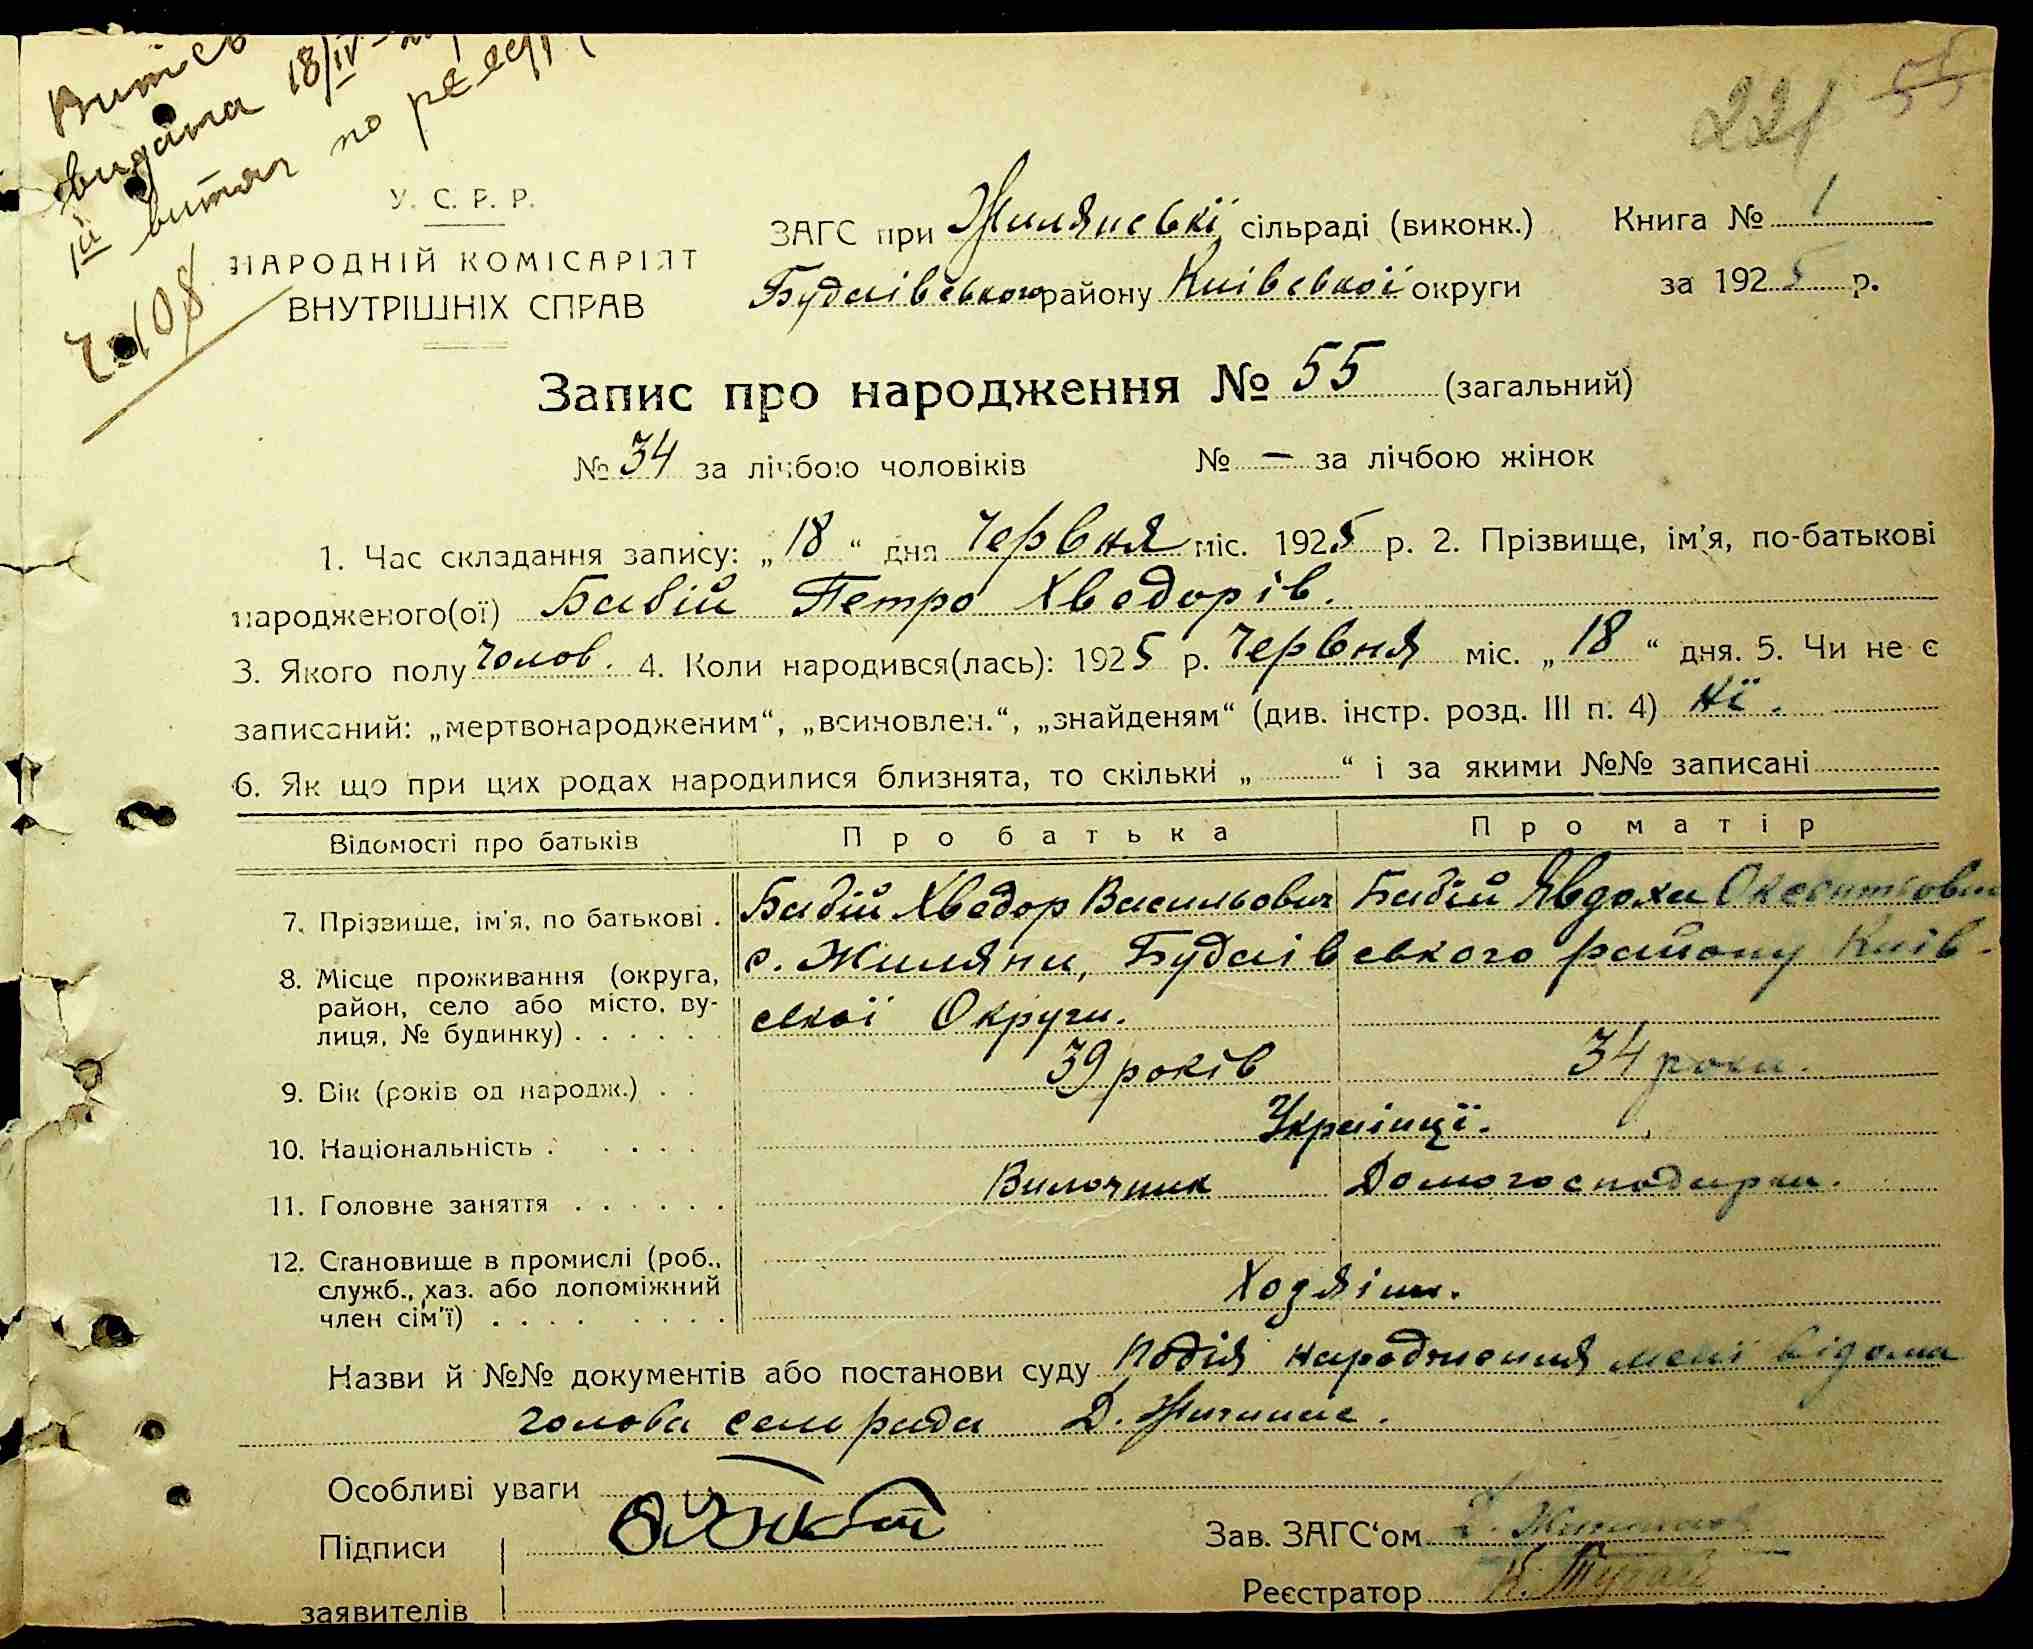 видата 18/IV
1й витяг по
221 55
У. С. Р. Р.
НАРОДНІЙ КОМІСАРІЯТ
ВНУТРІШНІХ СПРАВ
ЗАГС при Жилянські сільраді (виконк.) Книга № 1
Будаівського району Київської округи за 1925 р.
Запис про народження № 55 (загальний)
№ 34 за лічбою чоловіків № — за лічбою жінок
1. Час складання запису: „18“ дня Червня міс. 1925 р. 2. Прізвище, ім'я, по-батькові
народженого(ої) Бабій Петро Хведорів.
3. Якого полу чолов. 4. Коли народився(лась): 1925 р. Червня міс. „18“ дня. 5. Чи не є
записаний: „мертвонародженим“, „всиновлен.“, „знайденям“ (див. інстр. розд. III п. 4) Ні.
6. Як що при цих родах народилися близнята, то скільки „ “ і за якими №№ записані
Відомості про батьків Про батька Про матір
7. Прізвище, ім'я, по батькові . Бабій Хведор Васильович Бабій Явдоха
8. Місце проживання (округа, с. Жиляни, Будаівського району Київ-
район, село або місто, ву-
лиця, № будинку) . . . . . . ської Округи.
9. Вік (років од народж.) . . 39 років 34 роки.
10. Національність . . . . . Українці.
11. Головне заняття . . . . . . Домогосподарка.
12. Становище в промислі (роб.,
служб., хаз. або допоміжний
член сім'ї) . . . . . . . . Ходяіни.
Назви й №№ документів або постанови суду Подія народження мені відома
голова сельрада Д.
Особливі уваги
Підписи Зав. ЗАГС'ом Д.
заявителів Реєстратор К.